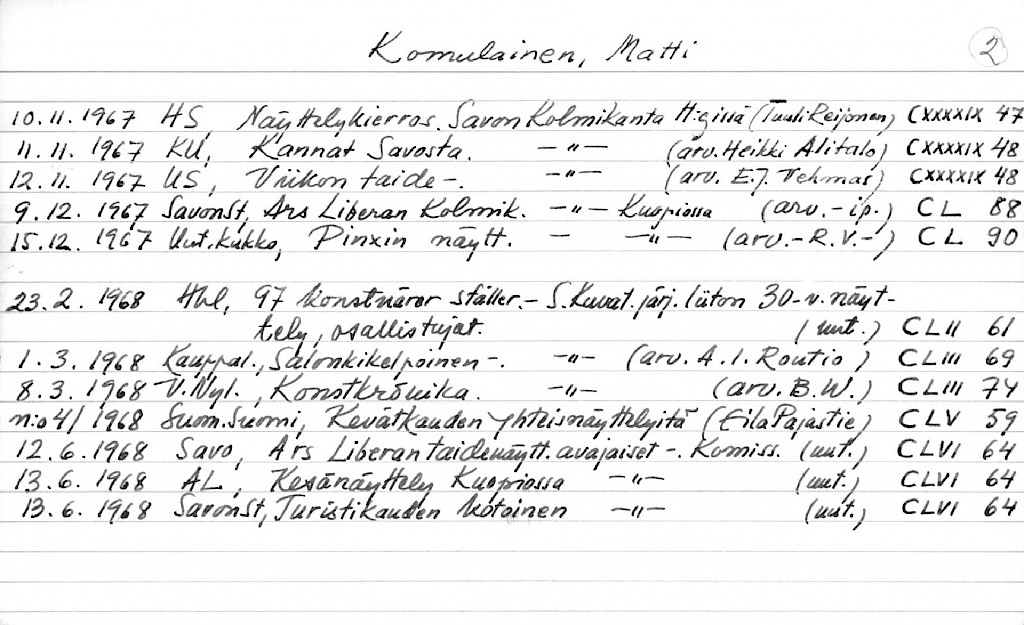 Komulainen, Matti 2
10.11.1967 HS, Näyttelykierros. Savon Kolmikanta H:gissä (Tuuli Reijonen) CXXXXIX 47
11.11.1967 KU, Kannat Savosta. -"- (arv. Heikki Alitalo) CXXXXIX 48
12.11.1967 US, Viikon taide -. -"- (arv. E.J. Vehmas) CXXXXIX 48
9.12.1967 SavonSt, Ars Liberan Kolmik. -"- Kuopiossa (arv. -ip.) CL 88
15.12.1967 Uut.Kukko, Pinxin näytt. - -"- (arv. -R.V.-) CL 90
23.2.1968 Hbl, 97 konstnärer ställer.- S.Kuvat.järj.liiton 30-v.näyt-
tely, osallistujat. (uut.) CLII 61
1.3.1968 Kauppal., Salonkikelpoinen -. -"- (arv. A.I. Routio) CLIII 69
8.3.1968 V.Nyl., Konstkrönika. -"- (arv. B.W.) CLIII 74
n:o 4/1968 Suom.Suomi, Kevätkauden yhteisnäyttelyitä (Eila Pajastie) CLV 59
12.6.1968 Savo, Ars Liberan taidenäytt. avajaiset -. Komiss. (uut.) CLVI 64
13.6.1968 AL, Kesänäyttely Kuopiossa -"- (uut.) CLVI 64
13.6.1968 SavonSt, Turistikauden kotoinen -"- (uut.) CLVI 64